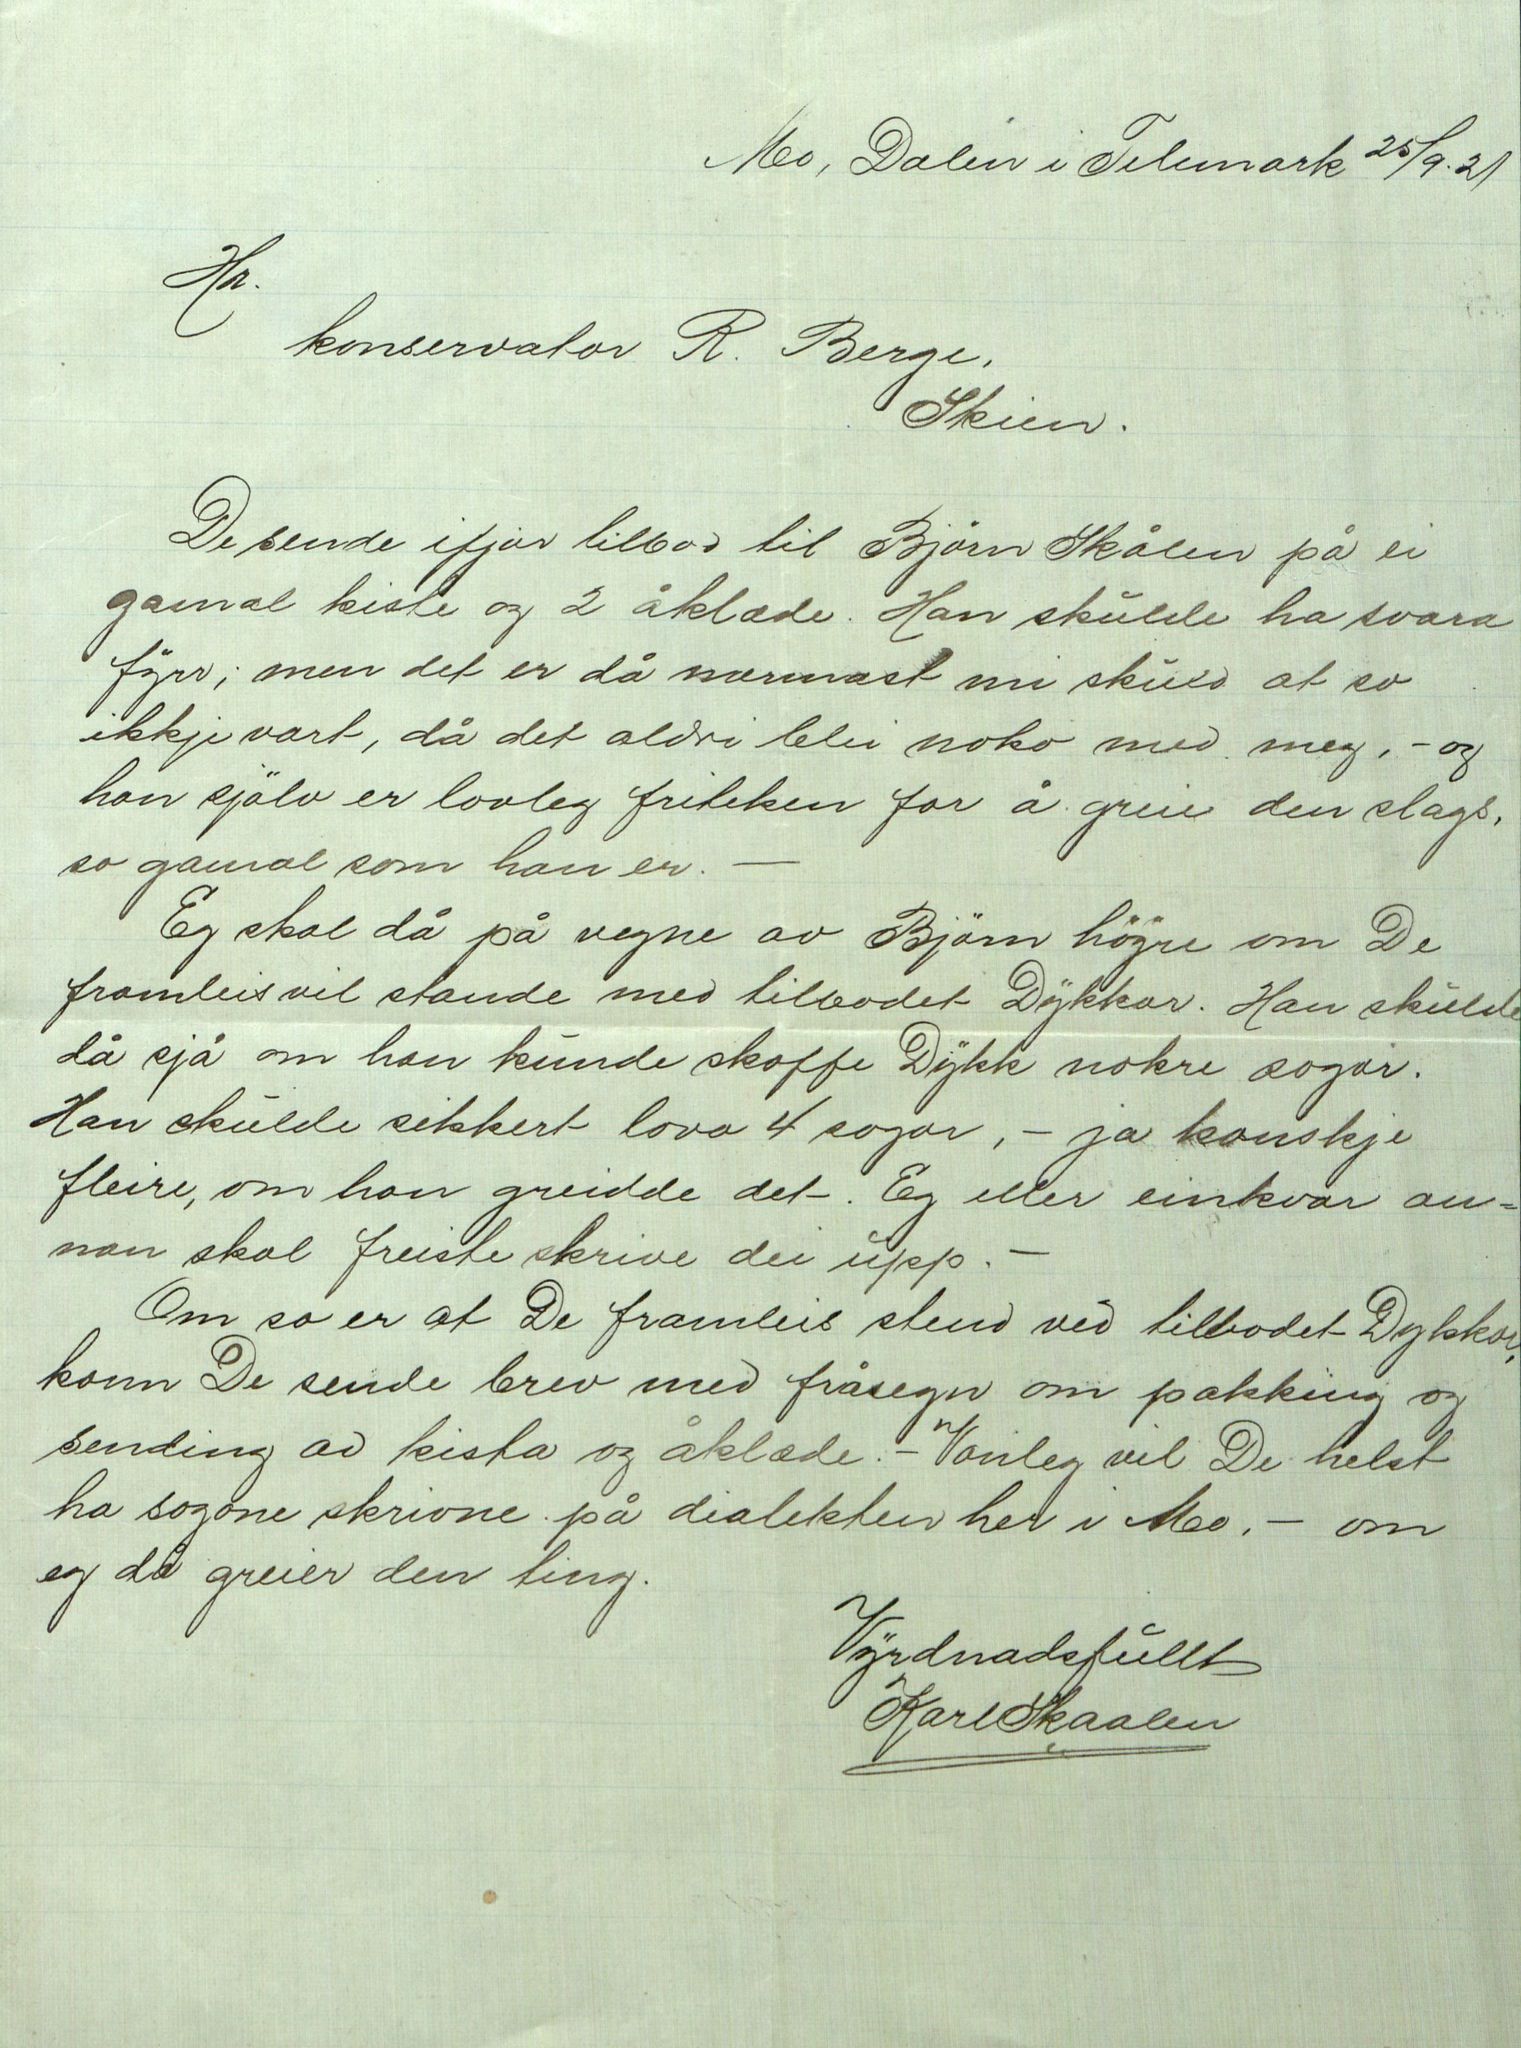 Mo, Dalen i Telemark 25/9.21
Hr.
konservator R. Berge,
Skien.
De sende ifjor tilbod til Björn Skålen på ei
gamal kiste og 2 åklæde. Han skulde ha svara
fyrr; men det er då nærmast mi skuld at so
ikkje vart, då det aldri blei noko med meg, - og
han själv er lovleg friteken for å greie den slags,
so gamal som han er. —
Eg skal då på vegne av Björn högre om De
framleis vil stande med tilbodet Dykkar. Han skulde
då sjå om han kunde skaffe Dykk nokre sogar.
Han skulde sikkert lova 4 sogar, - ja kanskje
fleire, om han greidde det. Eg eller einkvar an=
nan skal freiste skrive dei upp. —
Om so er at De framleis stend ved tilbodet Dykkar,
kann De sende brev med fråsegn om pakking og
sending av kista og åklæde. - Vanleg vil De helst
ha sogone skrivne på dialekten her i Mo, - om
eg då greier den ting.
Vyrdnadsfullt
Karl Skaalen